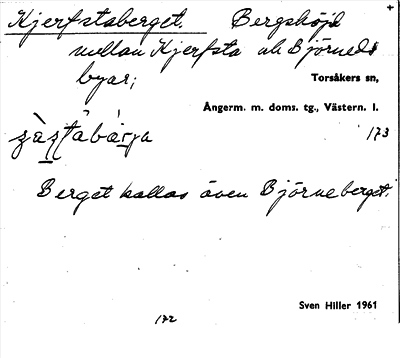 Kjerfstaberget. Bergshöjd
mellan Kjerfsta ock Björneds
byar;
Torsåkers sn,
Ångerm. m. doms. tg., Västern. l.
173
Berget kallas även Björneberget.
Sven Hiller 1961
172